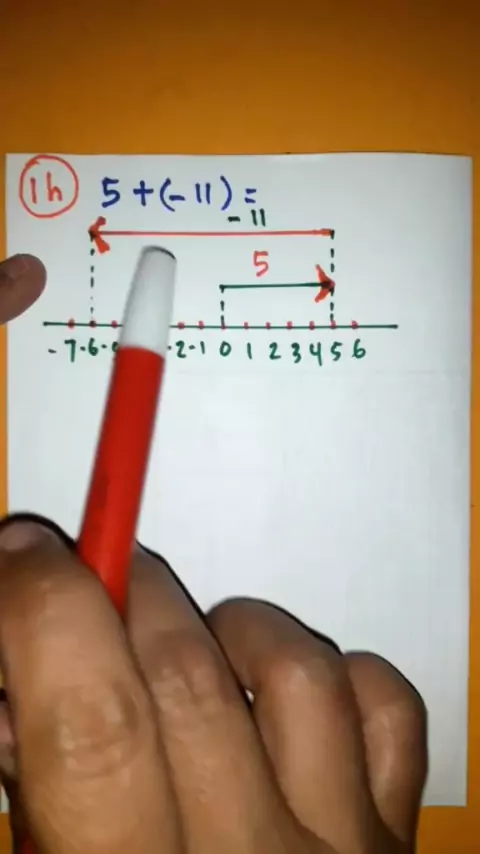 1h 5 + (-11) =
-11
5
-7 -6 -2 -1 0 1 2 3 4 5 6